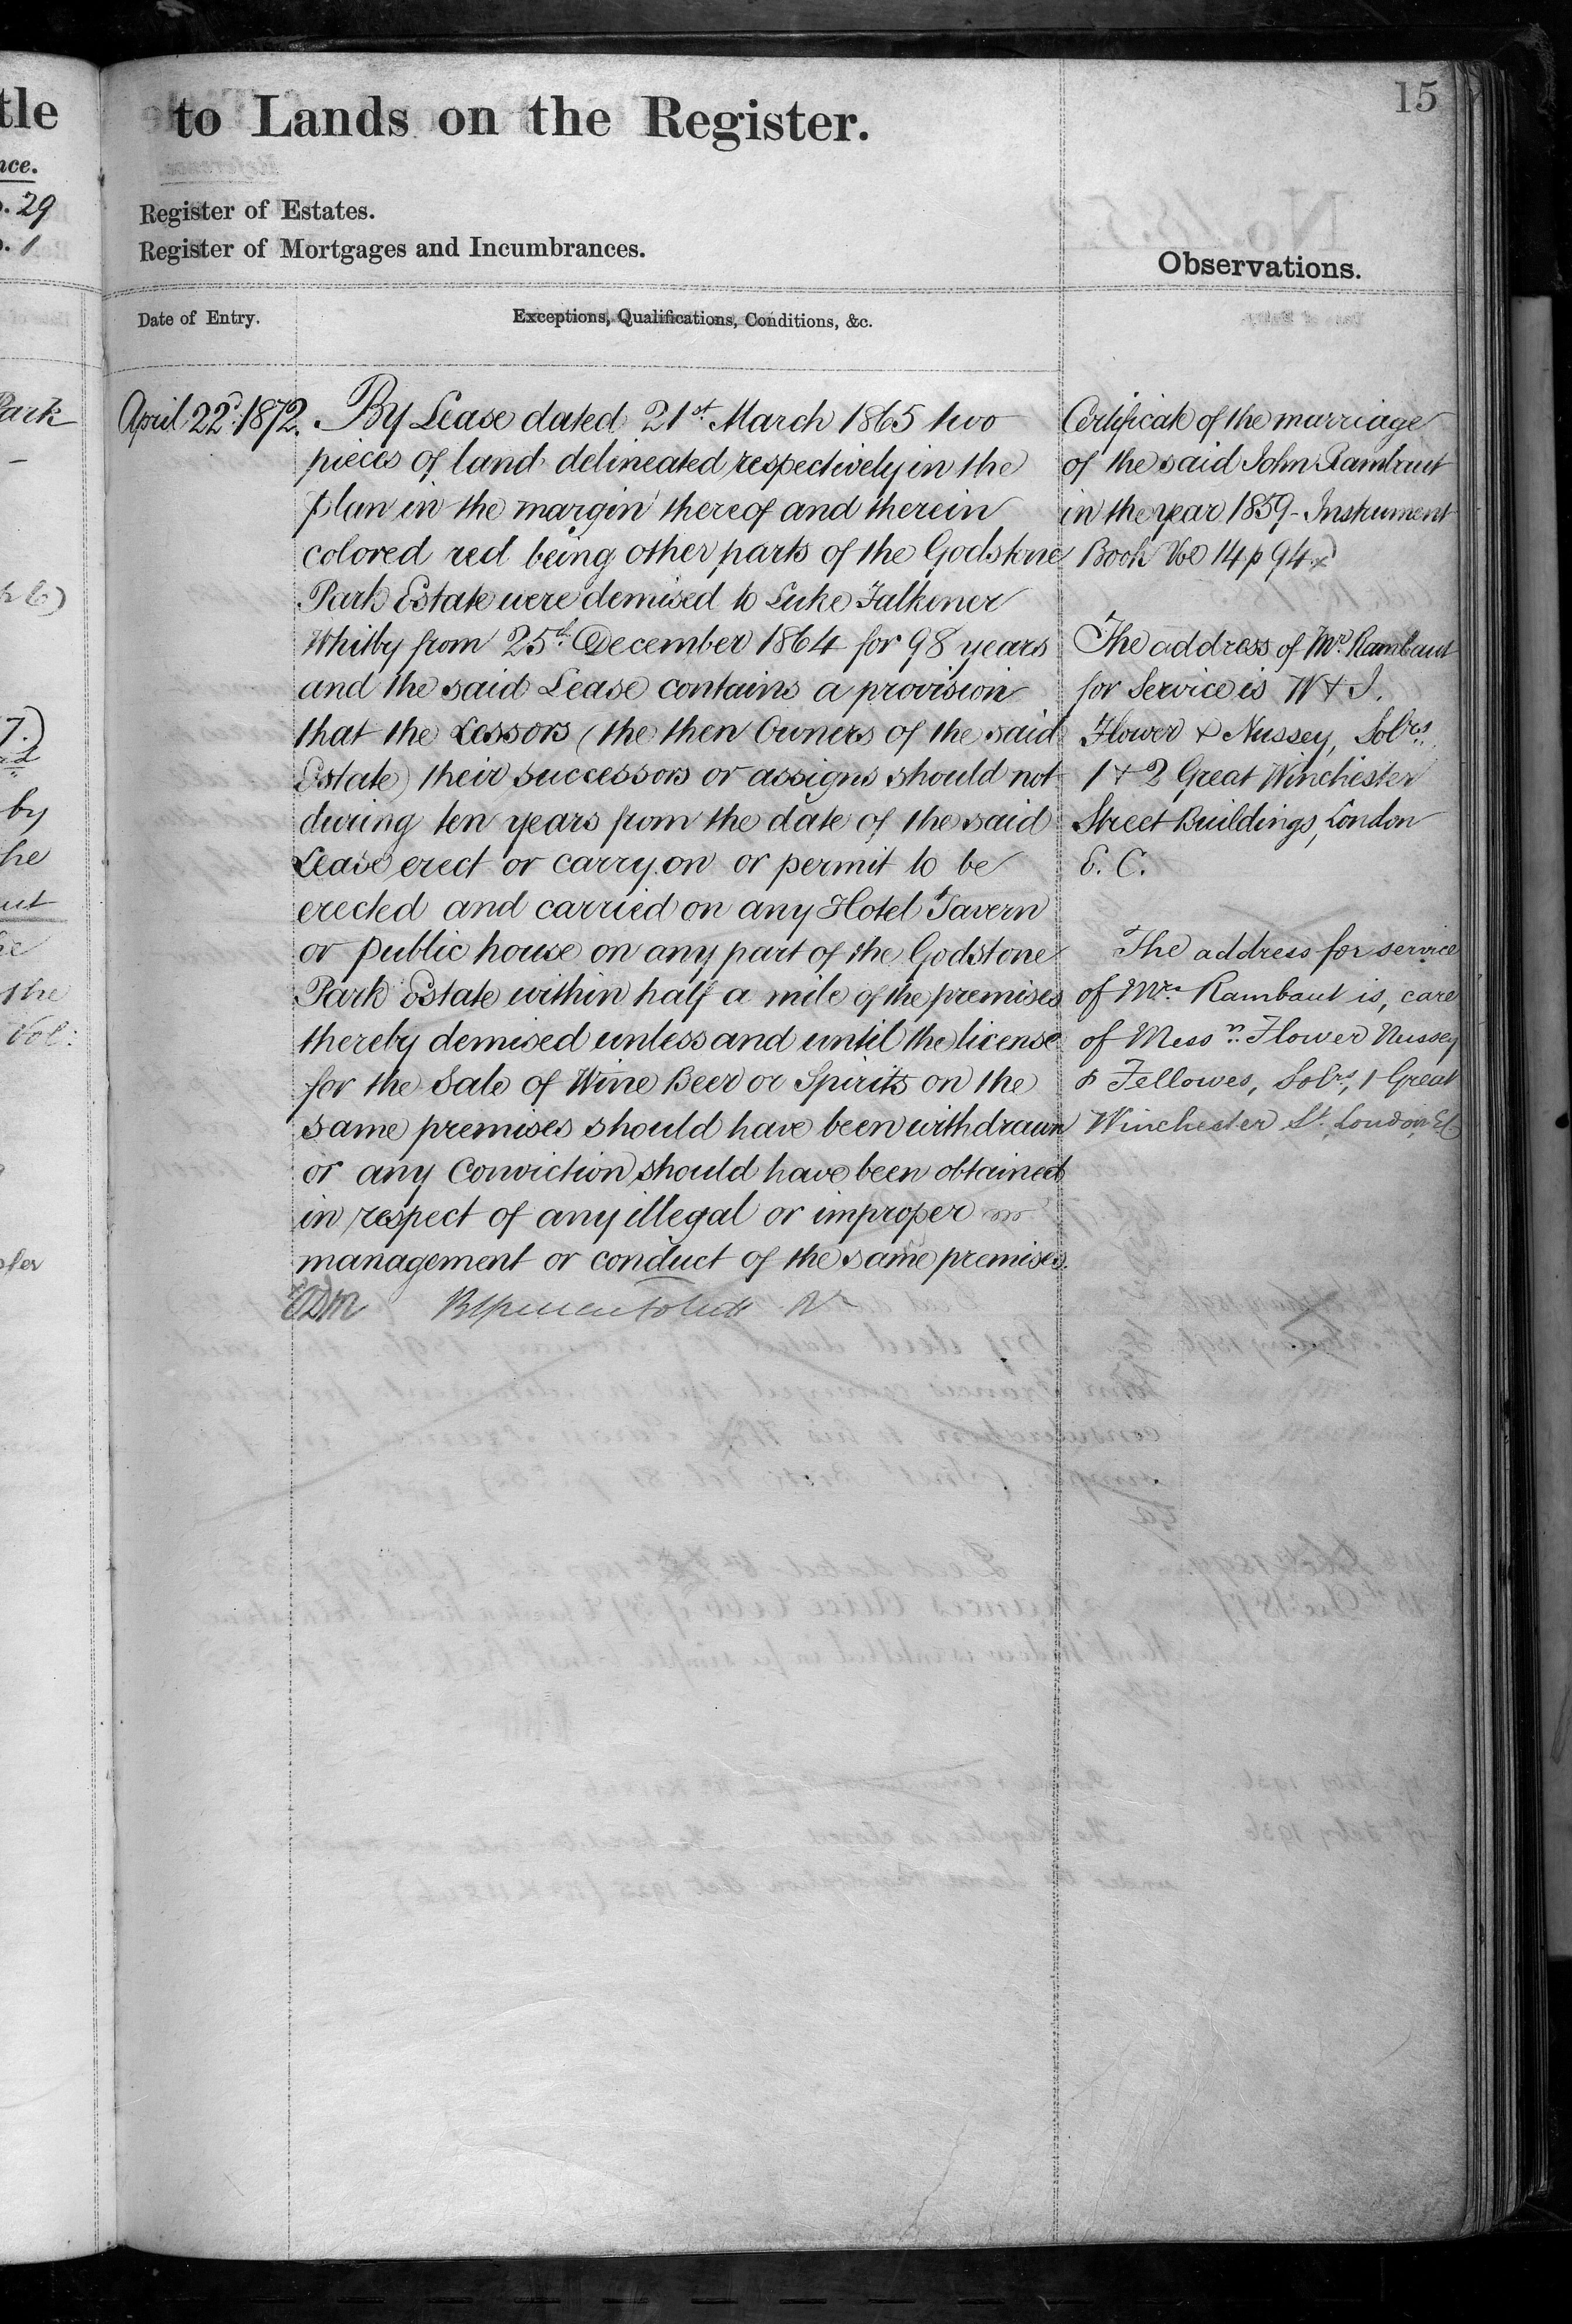 tle
nce.
. 29
. 1
Park
by
he
the
Vol:
to Lands on the Register.
15
Register of Estates.
Register of Mortgages and Incumbrances.
Observations.
Date of Entry.
Exceptions, Qualifications, Conditions, &c.
April 22d. 1872.
By Lease dated 21st March 1865 two
pieces of land delineated respectively in the
plan in the margin thereof and therein
colored red being other parts of the Godstone
Park Estate were demised to Luke Falkener
Whitby from 25th December 1864 for 98 years
and the said Lease contains a provision
that the Lessors (the then Owners of the said
Estate) their successors or assigns should not
during ten years from the date of the said
Lease erect or carry on or permit to be
erected and carried on any Hotel Tavern
or public house on any part of the Godstone
Park Estate within half a mile of the premises
thereby demised unless and until the license
for the Sale of Wine Beer or Spirits on the
same premises should have been withdrawn
or any Conviction should have been obtained
in respect of any illegal or improper
management or conduct of the same premises.
Certificate of the marriage
of the said John Rambaut
in the year 1859 - Instrument
Book Vol 14 p 94.
The address of Mr. Rambaut
for Service is W & J.
Flower & Nussey, Solrs.
1 & 2 Great Winchester
Street Buildings, London
E. C.
The address for service
of Mrs Rambaut is, care
of Messrs. Flower Nussey
& Fellowes, Solrs, 1 Great
Winchester St. London EC